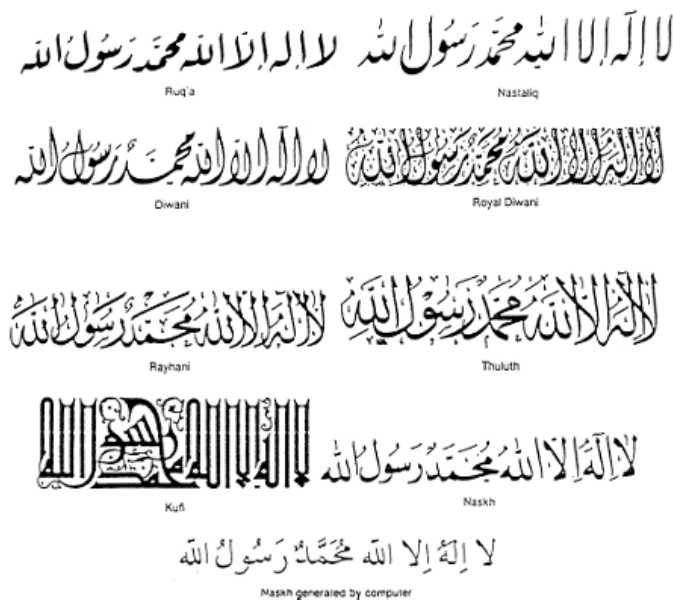 لا اله الا الله محمد رسول الله
Ruq'a
لا إله الا الله محمد رسول الله
Nastaliq
لا اله الا الله محمد رسول الله
Diwani
لا اله الا الله محمد رسول الله
Royal Diwani
لا اله الا الله محمد رسول الله
Rayhani
لا اله الا الله محمد رسول الله
Thuluth
Kufi
لا اله الا الله محمد رسول الله
Naskh
لا إله إلا الله محمد رسول الله
Naskh generated by computer